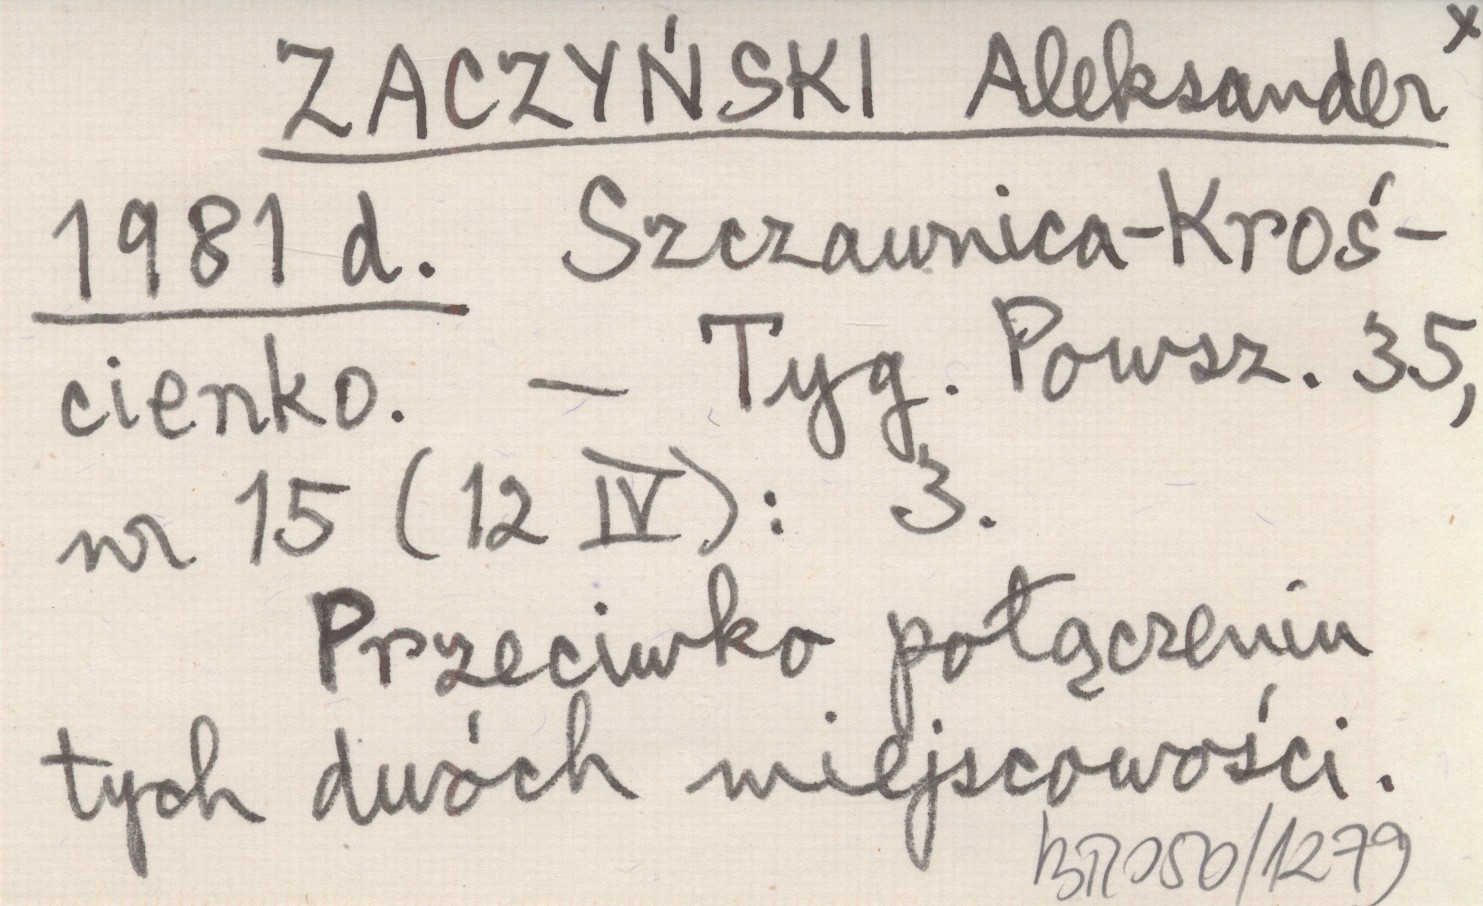 ZACZYŃSKI Aleksander x
1981 d. Szczawnica-Kroś-
cienko. — Tyg. Powsz. 35,
nr 15 (12 IV): 3.
Przeciwko połączeniu
tych dwóch miejscowości.
/1279